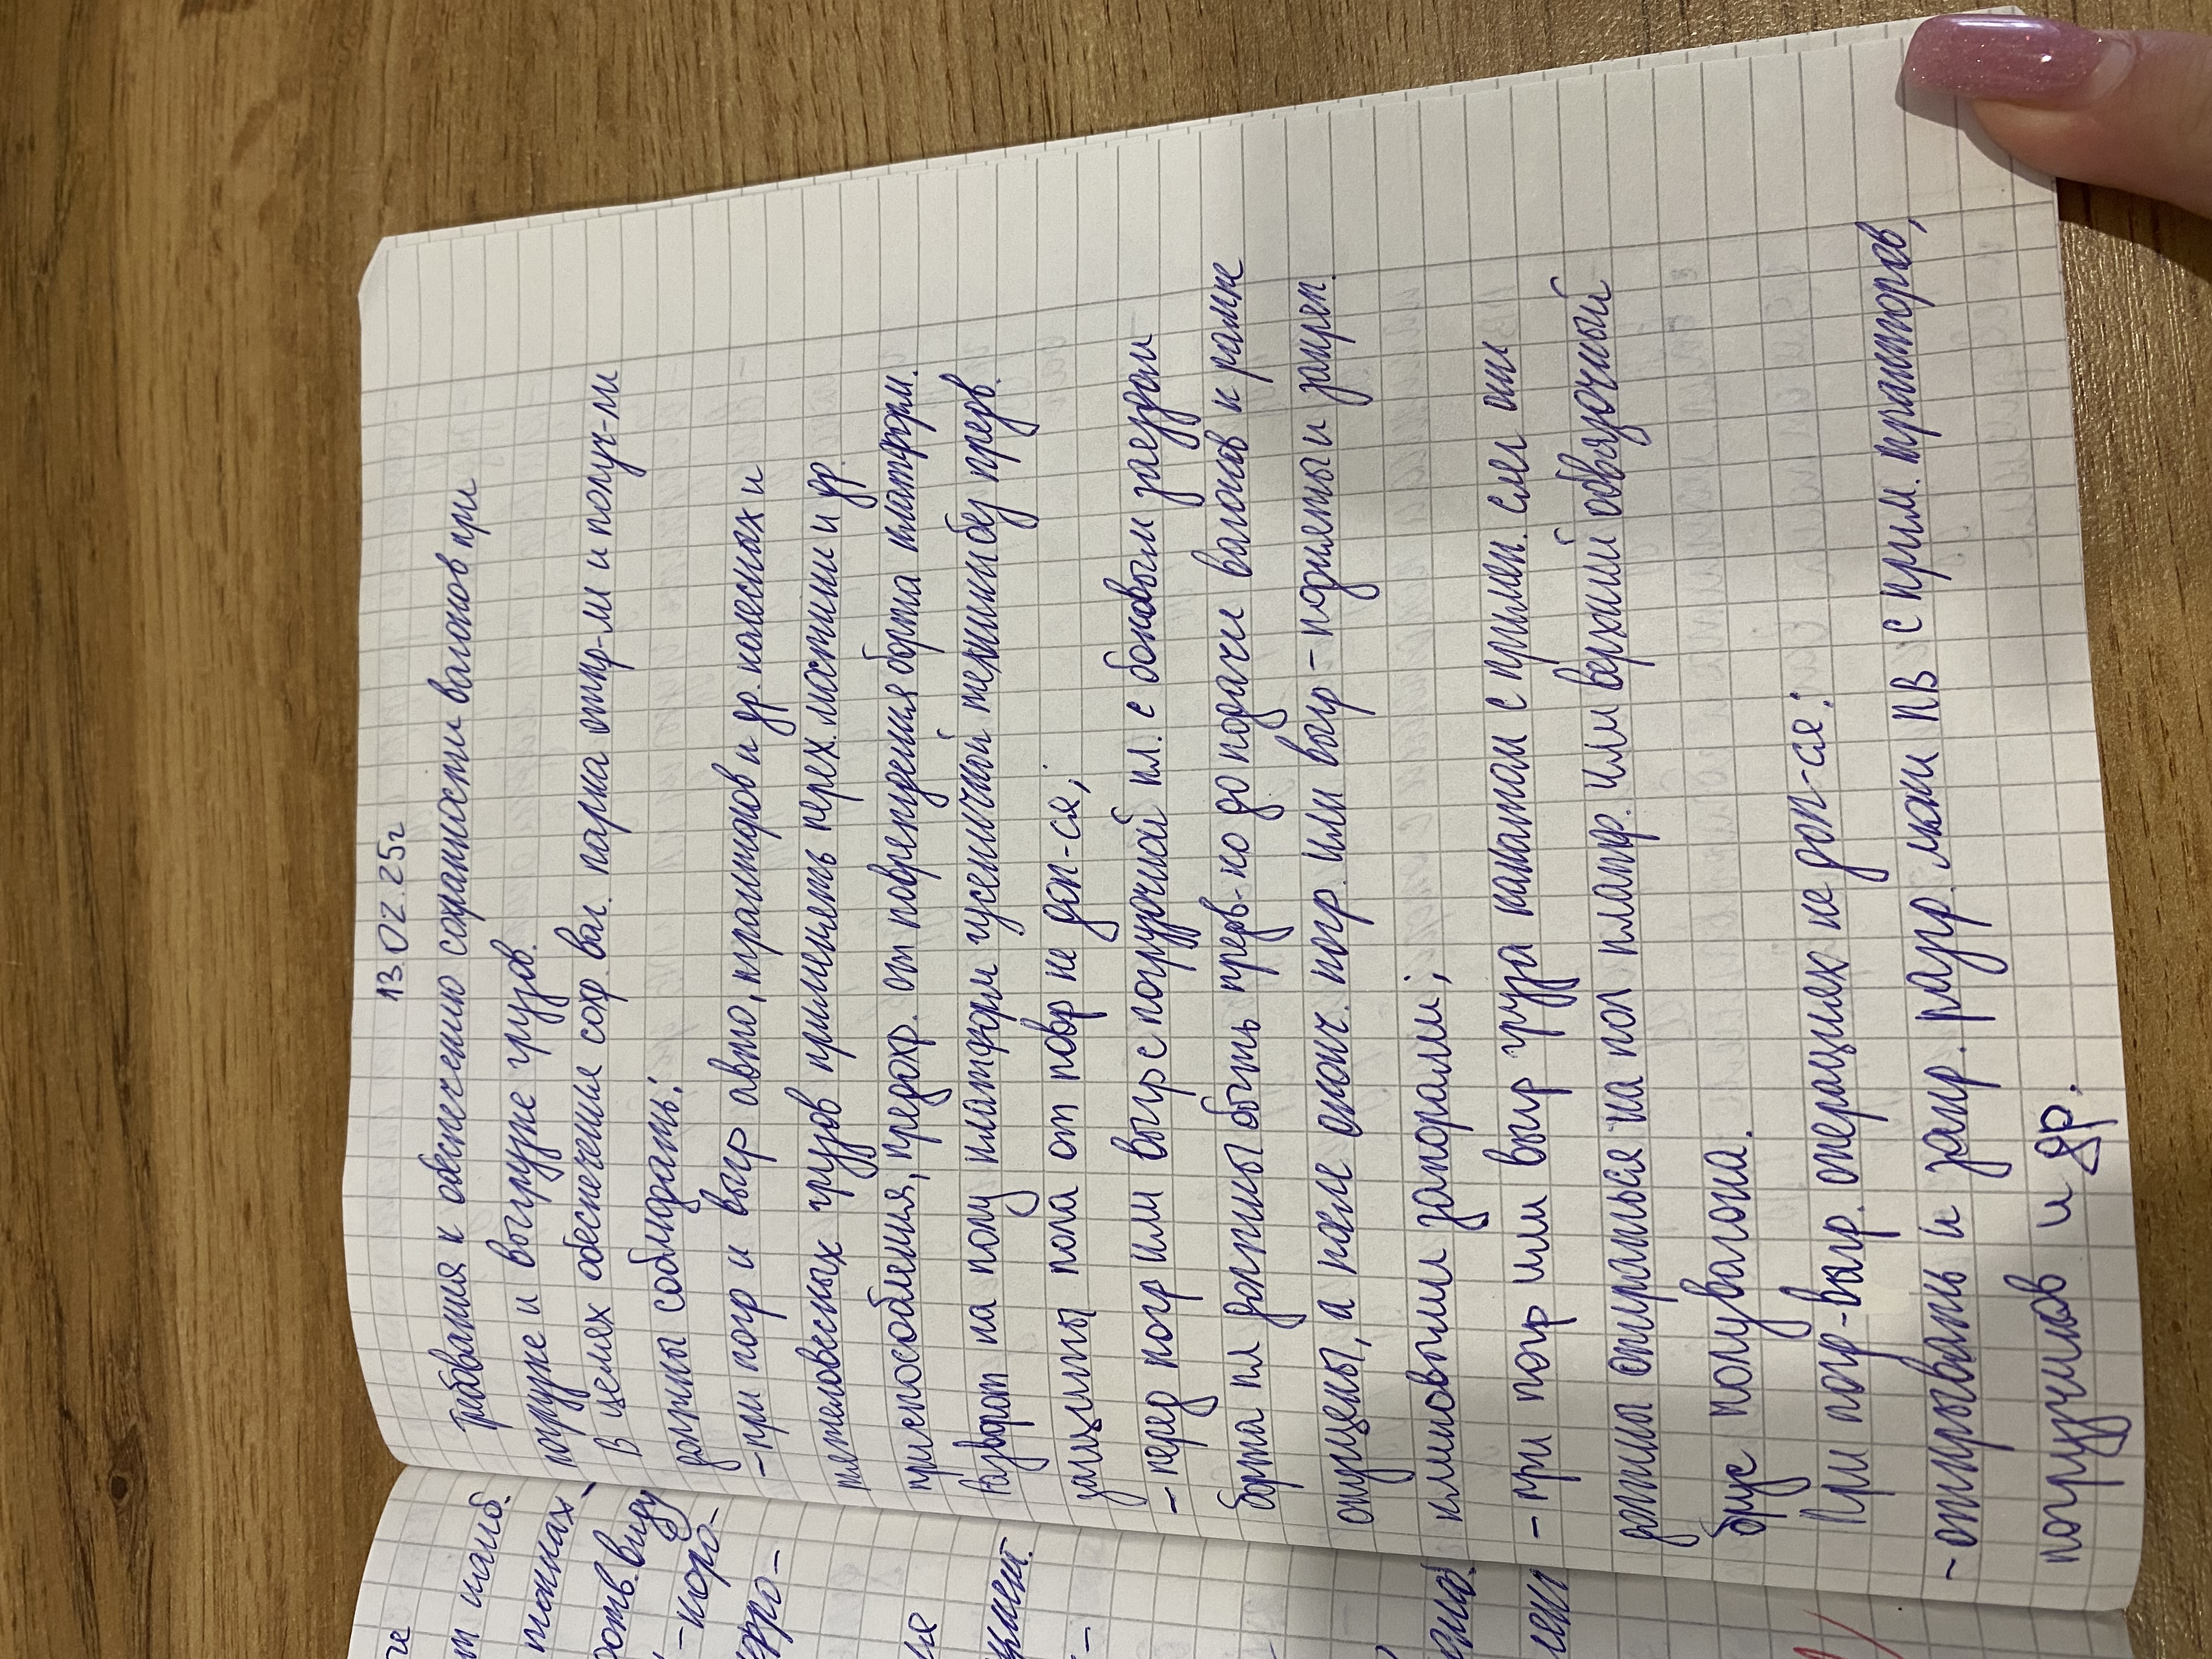 13.02.25г
Требования к обеспечению сохранности вагонов при
погрузке и выгрузке грузов.
В целях обеспечения сохр. ваг. парка отпр-ли и получ-ли
должны соблюдать:
-при погр и выгр авто, трапторов и др. колесных и
тяжеловесных грузов применять перех. мостики и др.
приспособления, предохр. от повреждения борта платформ.
Разворот на полу платформ гусеничной техники без предв.
защиты пола от повр не доп-ся;
- перед погр или выгр с погрузочной пл. с боковым заездом
борта пл должны быть предв-но до подачи вагонов к рампе
опущены, а после оконч. погр. или выгр - подняты и закреп.
клиновыми запорами;
- при погр или выгр груза накатом с примен. слег они
должны опираться на пол платф. или верхний обвязочный
брус полувагона.
При погр-выгр. операциях не доп-ся:
- открывать и закр. разгр. люки ПВ с прим. тракторов,
погрузчиков и др.
ие
т наиб.
тожнах-
ротв. виду
-коро-
ерро-
ся